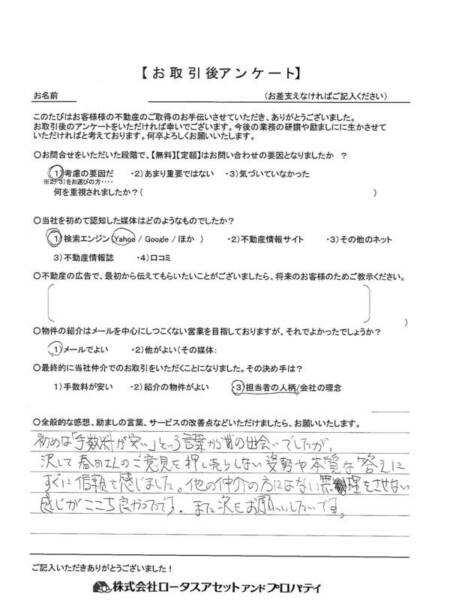 【お取引後アンケート】
お名前 (お差支えなければご記入ください)
このたびはお客様様の不動産のご取得のお手伝いさせていただき、ありがとうございました。
お取引後のアンケートをいただければ幸いでございます。今後の業務の研鑽や励ましにに生かさせて
いただければと考えております。何卒よろしくお願いいたします。
〇お問合せをいただいた段階で、【無料】【定額】はお問い合わせの要因となりましたか ?
1)考慮の要因だ ・2)あまり重要ではない ・3)気づいていなかった
※2)・3)をお選びの方・・・・
何を重視されましたか?( )
〇当社を初めて認知した媒体はどのようなものでしたか?
1)検索エンジン(Yahoo / Google / ほか ) ・2)不動産情報サイト ・3)その他のネット
3)不動産情報誌 ・4)口コミ
〇不動産の広告で、最初から伝えてもらいたいことがございましたら、将来のお客様のためご教示ください。
〇物件の紹介はメールを中心にしつこくない営業を目指しておりますが、それでよかったでしょうか?
1)メールでよい ・2)他がよい(その媒体: )
〇最終的に当社仲介でのお取引をいただくことになりました。その決め手は?
1)手数料が安い ・2)紹介の物件がよい ・3)担当者の人柄/会社の理念
〇全般的な感想、励ましの言葉、サービスの改善点などいただけましたら、お願いいたします。
初めは「手数料が安い」という言葉から の出会いでしたが、
決して春田さんのご意見を押し売らしない姿勢や本質な答えに
すぐに信頼を感じました。他の仲介の方にはない無理をさせない
感じがここち良かったです。また次もお願いしたいです。
ご記入いただきありがとうございました!
株式会社ロータスアセットアンドプロパティ